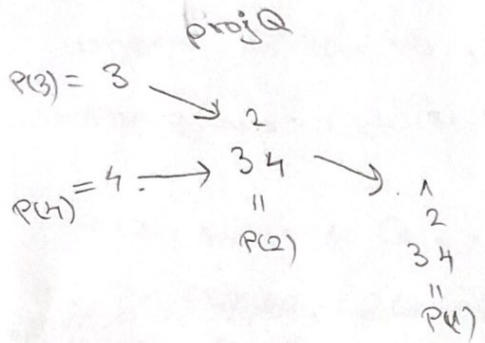 projQ
P(3) = 3
2
P(4) = 4.
3 4
1
=
2
P(2)
3 4
=
P(1)